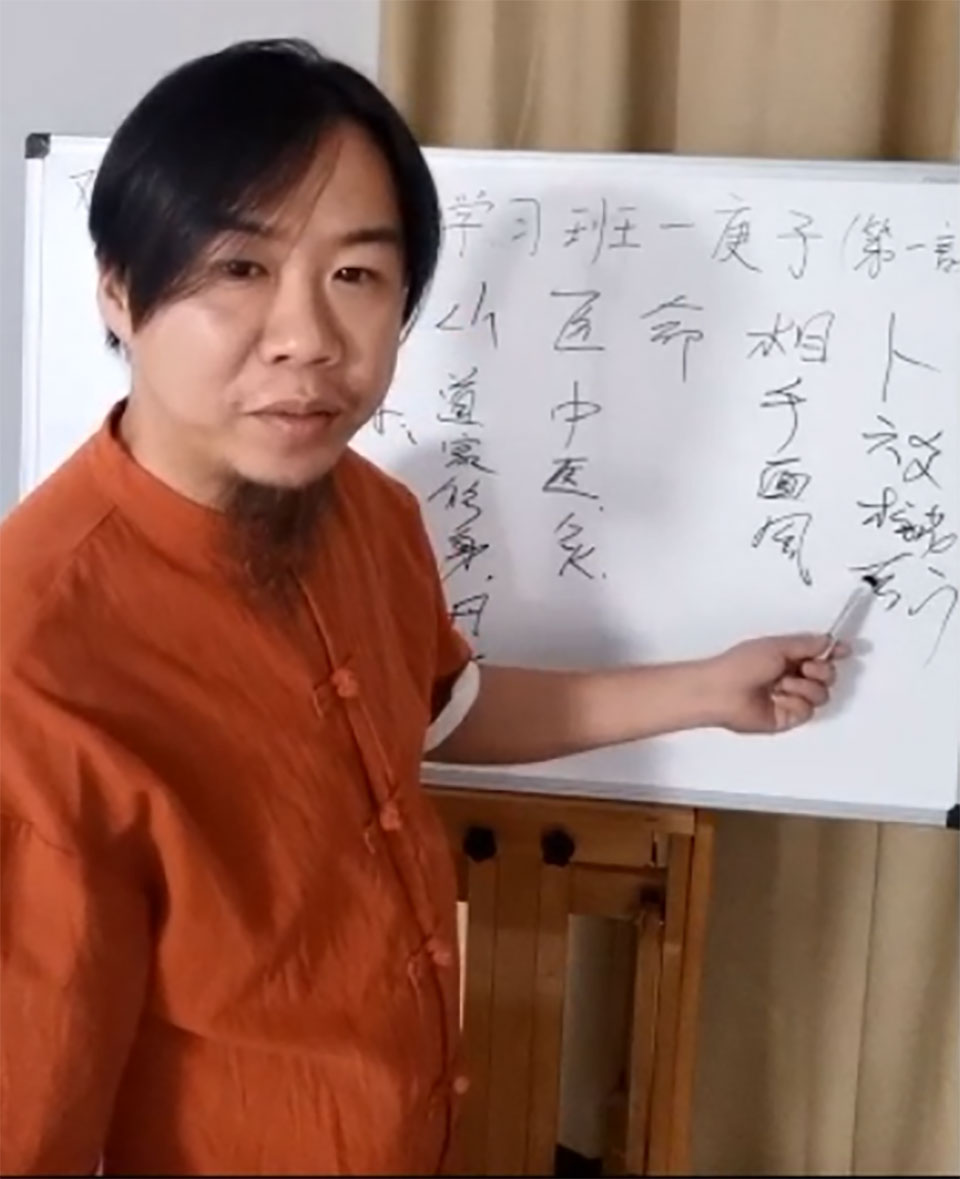 学习班一庚子(第一
山 医 命 相 卜
道家修身.丹.
中医.灸.
手面风
六爻